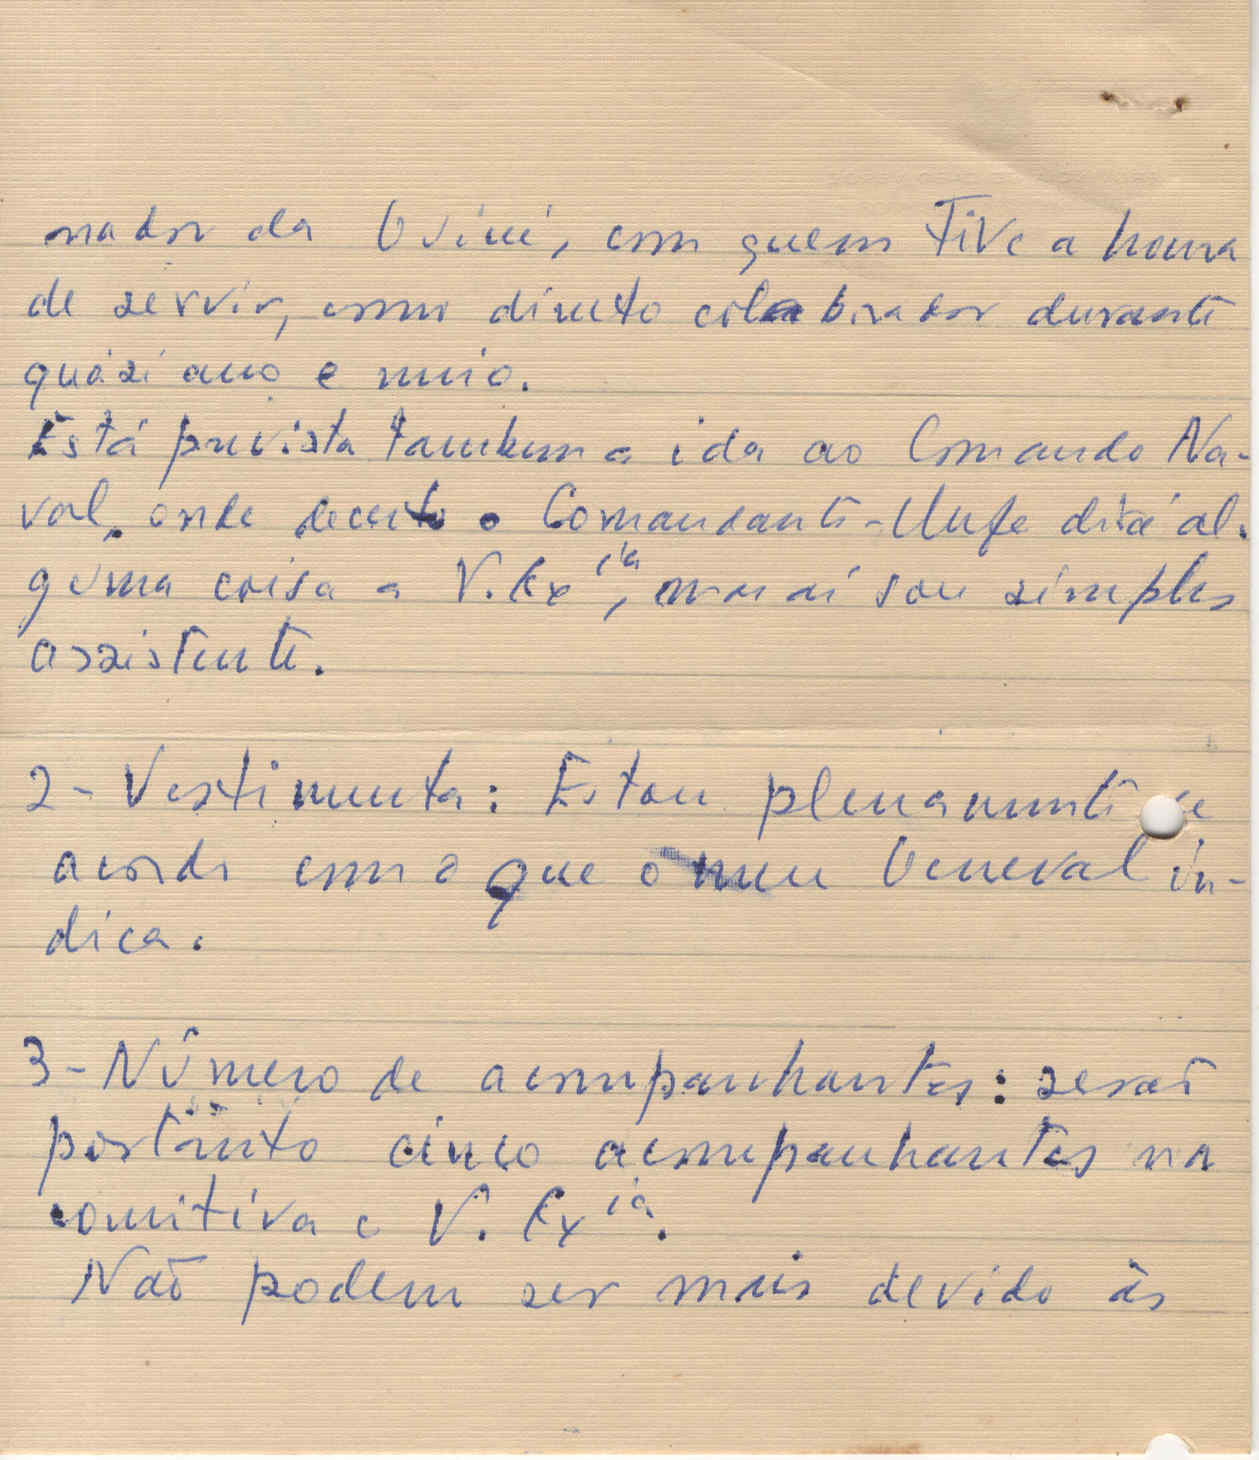 nador da Guiné, com quem tive a honra
de servir, como directo colaborador durante
quási ano e meio.
Está prevista também a ida ao Comando Na-
val, onde decerto o Comandante-Chefe dirá al-
guma coisa a V. Excia, mas aí sou simples
assistente.
2- Vestimenta: Estou plenamente de
acordo com o que o meu General in-
dica.
3- Número de acompanhantes: serão
portanto cinco acompanhantes na
comitiva e V. Excia.
Não podem ser mais devido às